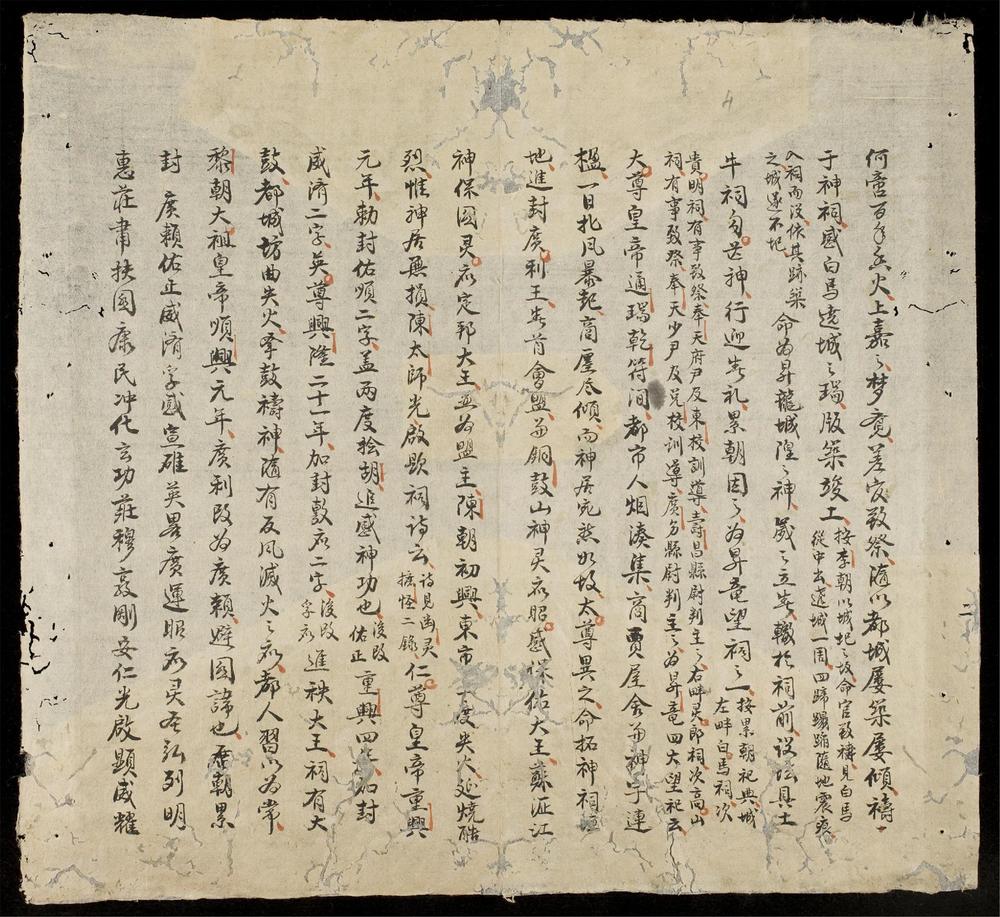 何啻百年香火上嘉之梦竟差官致祭随以都城屡築屡傾禱
于神祠感白馬遶城之瑞版築竣工
按李朝以城圯之故命官致禱見白馬
從中出遶城一周四蹄躡蹈随地震痕
入祠而没依其跡築
之城遂不圯
命为昇龍城隍之神歲之立春輙於祠前設坛具土
牛祠勾芒神行迎春礼累朝因之为昇竜望祠之一
按累朝祀典城
左畔白馬祠次
貴明祠有事致祭奉天府尹及東校訓導壽昌縣尉判主之右畔灵郎祠次高山
祠有事致祭奉天少尹及兑校訓導廣各縣尉判主之为昇竜四大望祀云
大尊皇帝通瑞乾符间都市人烟湊集商賈屋舍並神宇連
楹一日扎风暴起商廛尽傾而神居宛然如故太尊異之命拓神祠
地進封廣利王春首會盟並銅鼓山神灵应昭感保佑大王蘇沚江
神保國灵应定邦大王並为盟主陳朝初興東市一度失火延燒酷
烈惟神居無損陳太師光啟题祠诗云
诗見幽灵
摭怪二錄
仁尊皇帝重興
元年勅封佑順二字盖两度捡胡追感神功也
後改
佑正
重興四年加封
威濟二字英尊興隆二十一年加封敷应二字
後改
孚应
進秩大王祠有大
鼓都城坊曲失火夆鼓禱神随有反风滅火之应都人習以为常
黎朝大祖皇帝順興元年廣利改为廣賴避國諱也歷朝累
封廣賴佑正威濟孚感宣雄英畧廣運昭应灵 弘列明
惠莊肃扶國庥民冲化玄功莊穆敦剛安仁光啟顕威耀